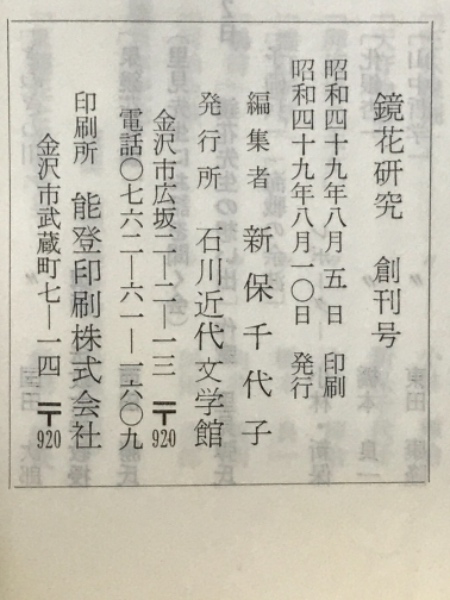 鏡花研究　創刊号
昭和四十九年八月　五　日　印刷
昭和四十九年八月一〇日　発行
編集者　新保千代子
発行所　石川近代文学館
金沢市広坂二―二―一三　〒920
電話〇七六二―六一―一六〇九
印刷所　能登印刷株式会社
金沢市武蔵町七―一四　〒920